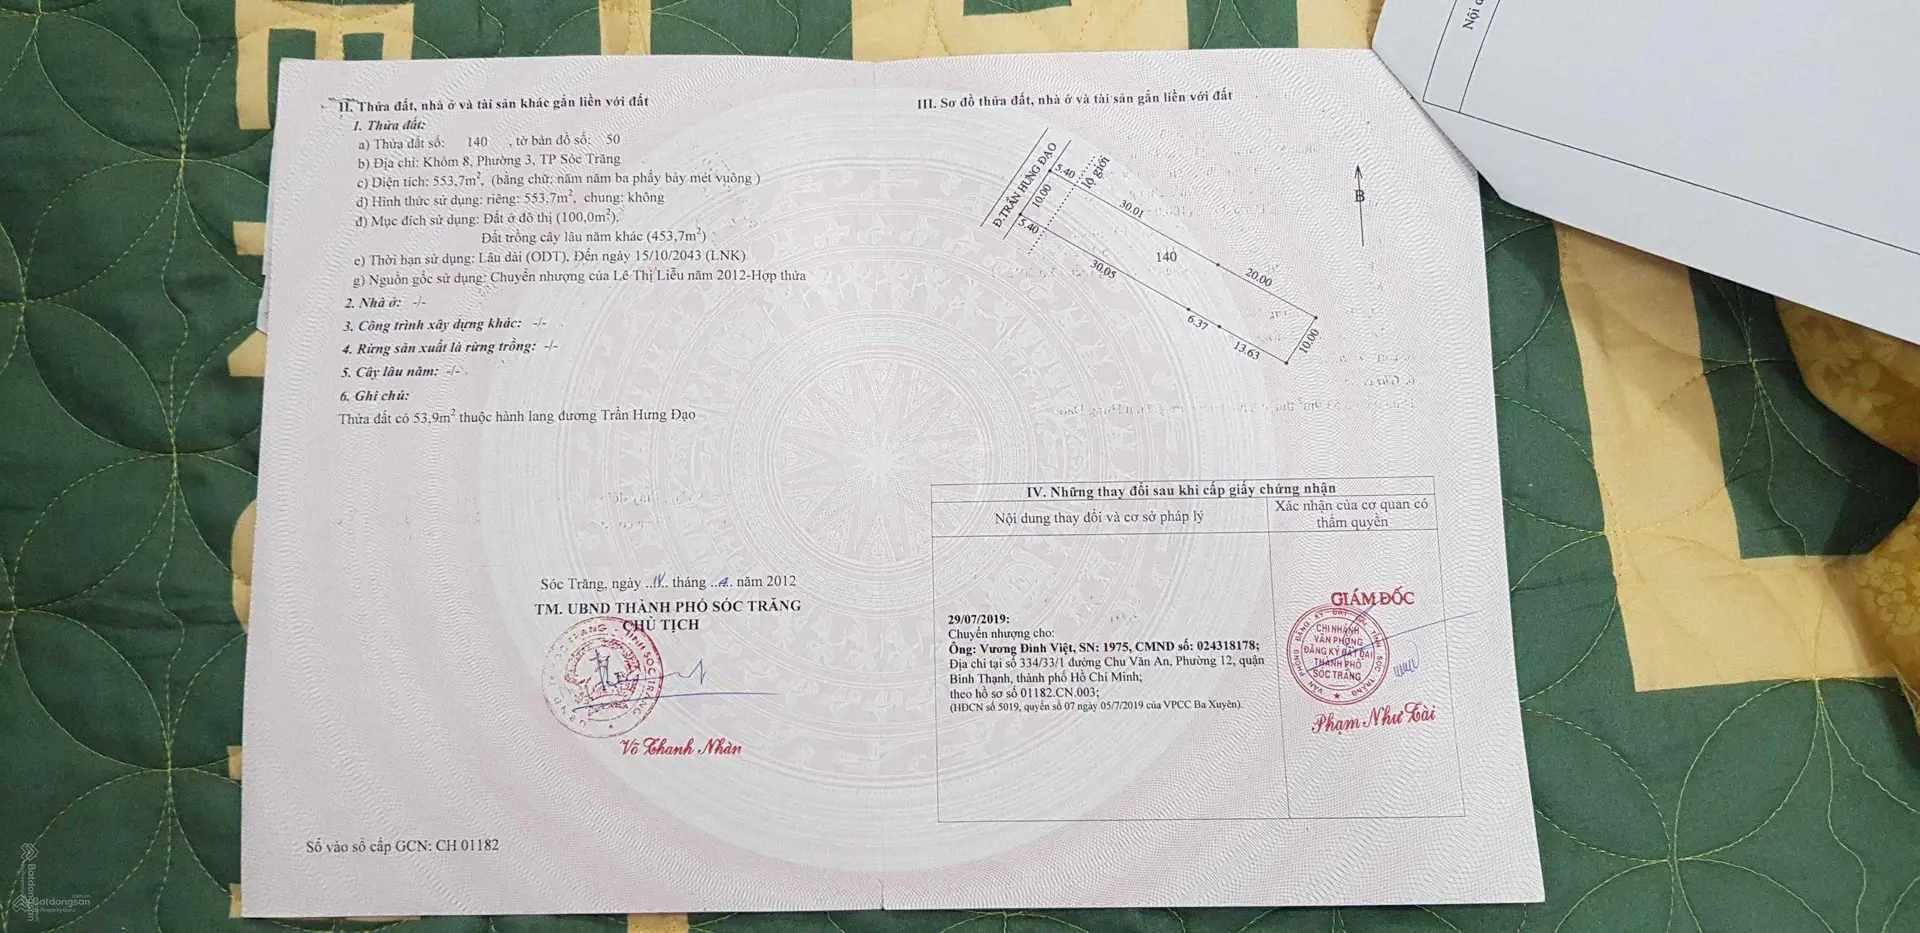 II. Thửa đất, nhà ở và tài sản khác gắn liền với đất
1. Thửa đất:
a) Thửa đất số: 140 , tờ bản đồ số: 50
b) Địa chỉ: Khóm 8, Phường 3, TP Sóc Trăng
c) Diện tích: 553,7m², (bằng chữ: năm năm ba phẩy bảy mét vuông )
d) Hình thức sử dụng: riêng: 553,7m², chung: không
đ) Mục đích sử dụng: Đất ở đô thị (100,0m²),
Đất trồng cây lâu năm khác (453,7m²)
e) Thời hạn sử dụng: Lâu dài (ODT), Đến ngày 15/10/2043 (LNK)
g) Nguồn gốc sử dụng: Chuyển nhượng của Lê Thị Liễu năm 2012-Hợp thửa
2. Nhà ở: -/-
3. Công trình xây dựng khác: -/-
4. Rừng sản xuất là rừng trồng: -/-
5. Cây lâu năm: -/-
6. Ghi chú:
Thửa đất có 53,9m² thuộc hành lang đường Trần Hưng Đạo
Sóc Trăng, ngày .... tháng .... năm 2012
TM. UBND THÀNH PHỐ SÓC TRĂNG
CHỦ TỊCH
Võ Thanh Nhàn
Số vào sổ cấp GCN: CH 01182
III. Sơ đồ thửa đất, nhà ở và tài sản gắn liền với đất
Đ.TRẦN HƯNG ĐẠO
5.40
lộ giới
10.00
5.40
30.01
B
140
30.05
20.00
6.37
13.63
10.00
IV. Những thay đổi sau khi cấp giấy chứng nhận
Nội dung thay đổi và cơ sở pháp lý
Xác nhận của cơ quan có
thẩm quyền
29/07/2019:
Chuyển nhượng cho:
Ông: Vương Đình Việt, SN: 1975, CMND số: 024318178;
Địa chỉ tại số 334/33/1 đường Chu Văn An, Phường 12, quận
Bình Thạnh, thành phố Hồ Chí Minh;
theo hồ sơ số 01182.CN.003;
(HĐCN số 5019, quyển số 07 ngày 05/7/2019 của VPCC Ba Xuyên).
GIÁM ĐỐC
CHI NHÁNH
VĂN PHÒNG
ĐĂNG KÝ ĐẤT ĐAI
THÀNH PHỐ
SÓC TRĂNG
Phạm Như Tài
Batdongsan